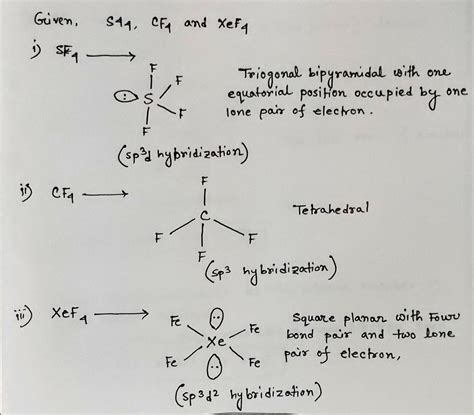 Given, S44, CF4 and XeF4
i) SF4 →
F
F
S
F
F
Triogonal bipyramidal with one
equatorial position occupied by one
lone pair of electron.
(sp3d hybridization)
ii) CF4 →
F
C
F
F
F
Tetrahedral
(sp3 hybridization)
iii) XeF4 →
Fe
Fe
Xe
Fe
Fe
Square planar with Four
bond pair and two lone
pair of electron,
(sp3d2 hybridization)